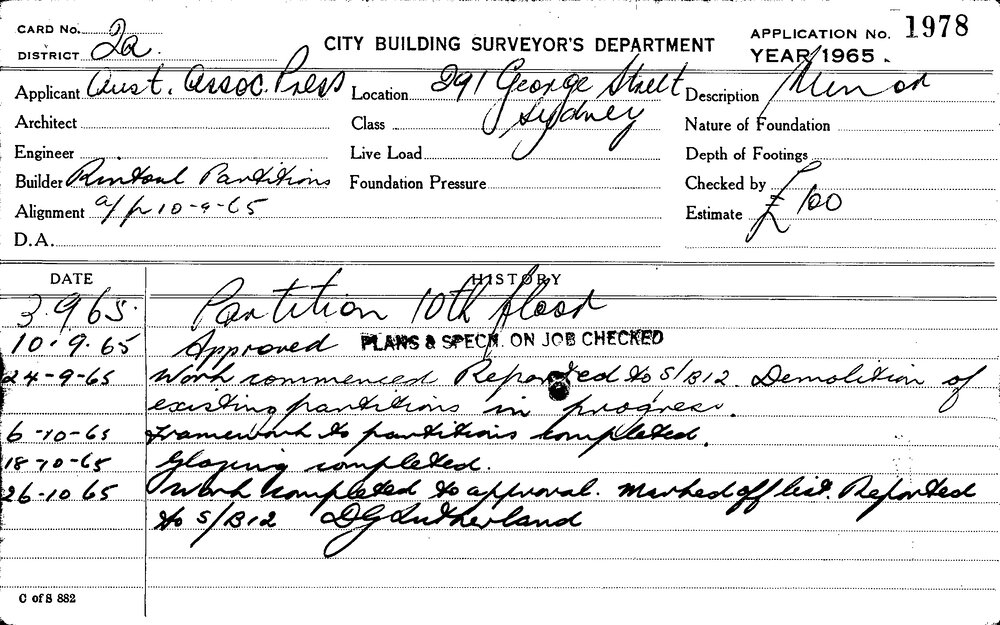 CARD No.
DISTRICT 2a.
CITY BUILDING SURVEYOR'S DEPARTMENT
APPLICATION No. 1978
YEAR 1965.
Applicant Aust. Assoc. Press
Location 291 George Street Sydney
Description Minor
Architect
Class
Nature of Foundation
Engineer
Live Load
Depth of Footings
Builder Rintoul Partitions
Foundation Pressure
Checked by
Alignment a/p 10-9-65
Estimate £ 100
D.A.
DATE HISTORY
3.9.65. Partition 10th floor
10.9.65 Approved PLANS & SPECN. ON JOB CHECKED
24-9-65 Work commenced Reported to S/B12. Demolition of
existing partitions in progress.
6-10-65 Framework to partitions completed.
18-10-65 Glazing completed.
26-10 65 Work completed to approval. Marked off list. Reported
to S/B12 DG Sutherland
C of S 882